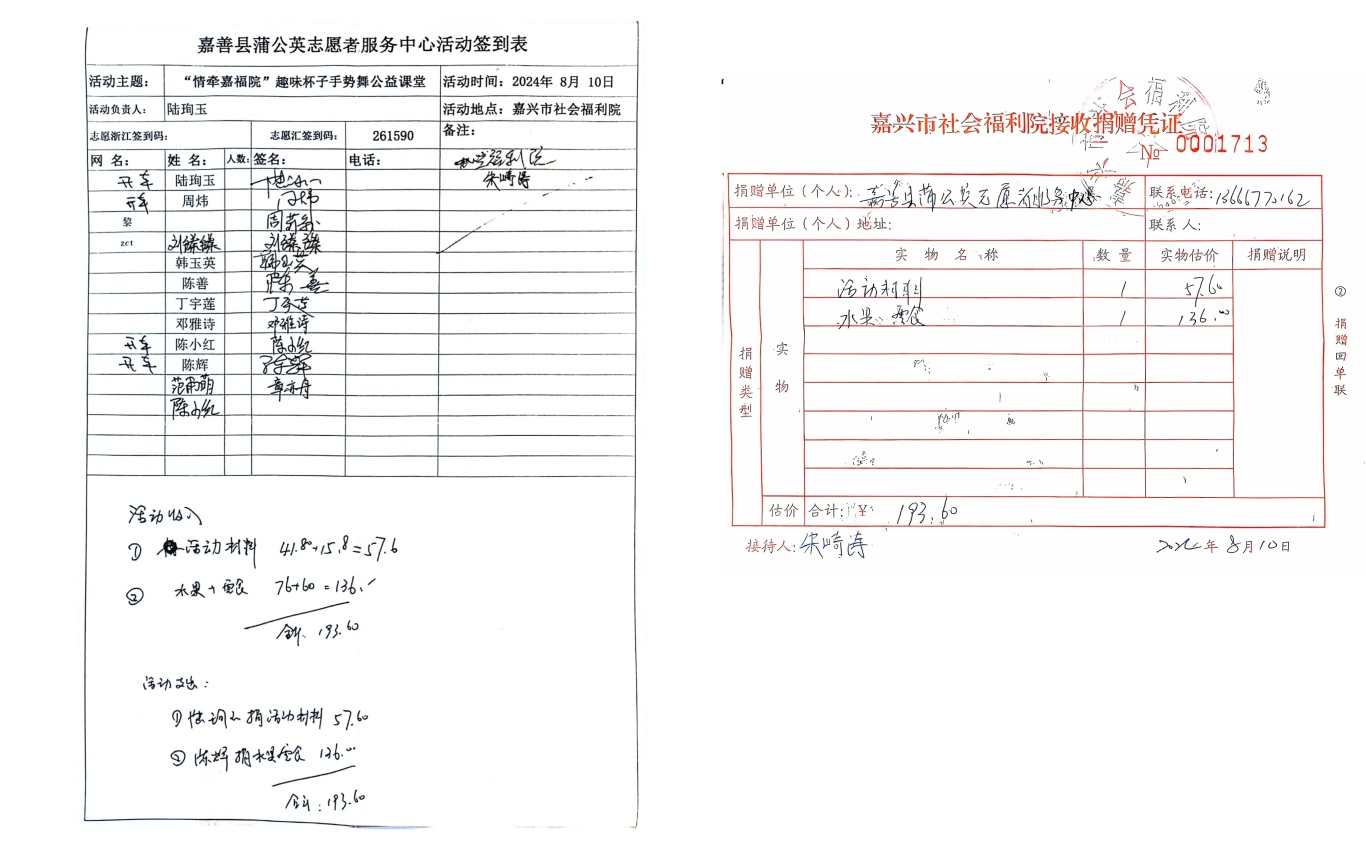 嘉善县蒲公英志愿者服务中心活动签到表
活动主题： “情牵嘉福院”趣味杯子手势舞公益课堂 活动时间：2024年 8月 10日
活动负责人： 陆珣玉 活动地点：嘉兴市社会福利院
志愿浙江签到码： 志愿汇签到码： 261590 备注：
网 名： 姓 名： 人数： 签名： 电话： 福利院
开车 陆珣玉 朱崎涛
开车 周炜 周炜
黎 周
zct 刘臻臻 刘臻臻
韩玉英 韩玉英
陈善 陈善
丁宇莲 丁宇莲
邓雅诗 邓雅诗
开车 陈小红 陈小红
开车 陈辉 陈辉
范雨萌 章亦舟
陈小红
活动收入
① 活动材料 41.80+15.8=57.6
② 水果+零食 76+60=136.
合计：193.60
活动支出：
① 陆珣玉捐活动材料 57.60
② 陈辉捐水果零食 136.00
合计：193.60
嘉兴市社会福利院接收捐赠凭证
№ 0001713
捐赠单位（个人）： 嘉善县蒲公英志愿者服务中心 联系电话：13666770162
捐赠单位（个人）地址： 联系人：
捐赠类型 实物 实 物 名 称 数 量 实物估价 捐赠说明
活动材料 1 57.60
水果、零食 1 136.00
估价 合计：¥ 193.60
接待人：朱崎涛 2024年 8月10日
② 捐赠回单联